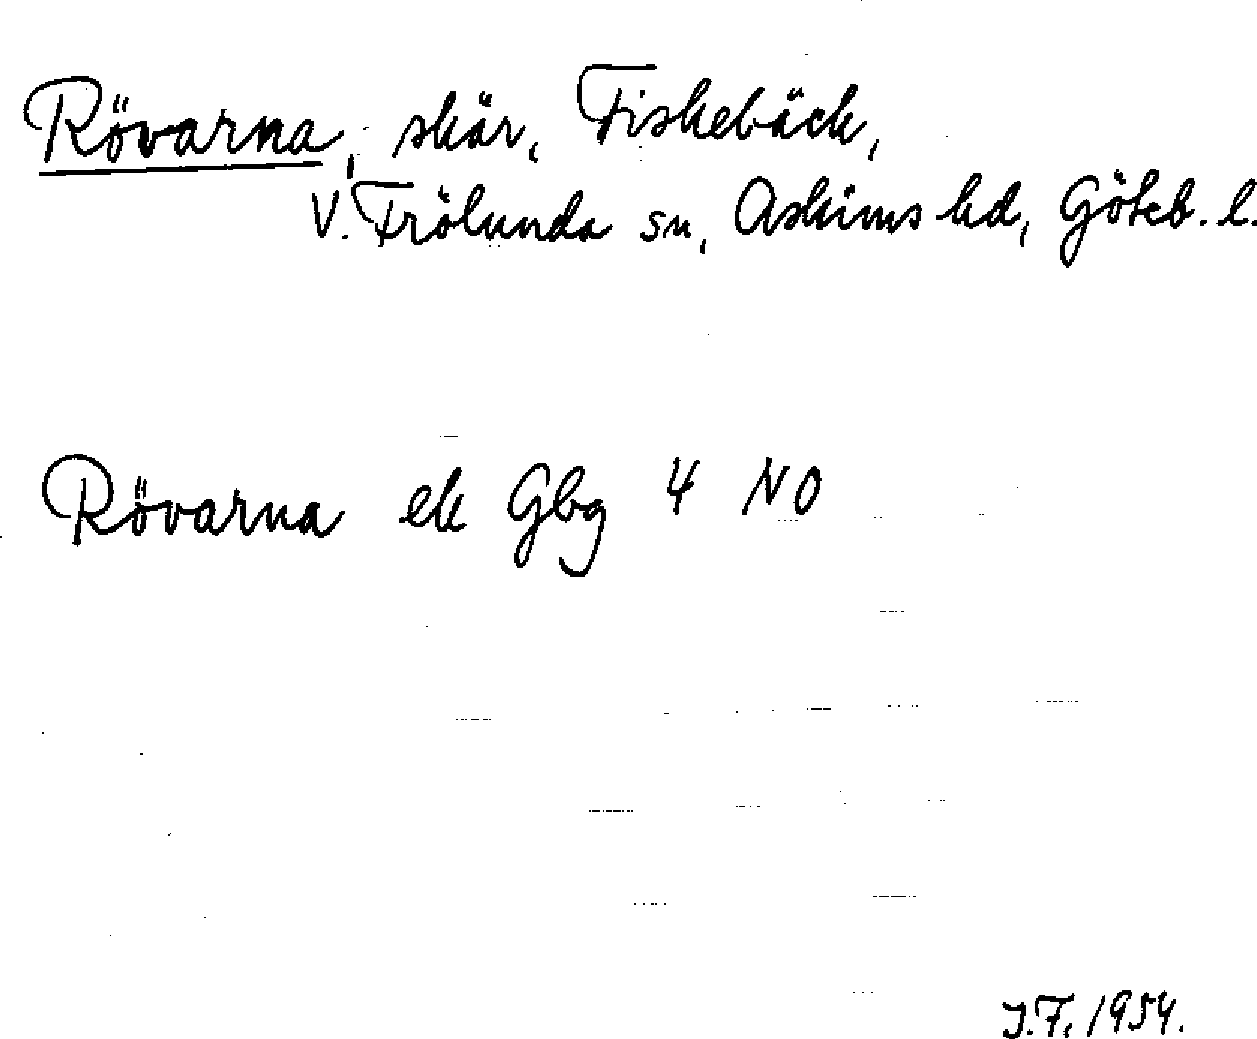 Rövarna, skär, Fiskebäck,
V. Frölunda sn, Askims hd, Göteb. l.
Rövarna ek Gbg 4 NO
J.F. 1954.